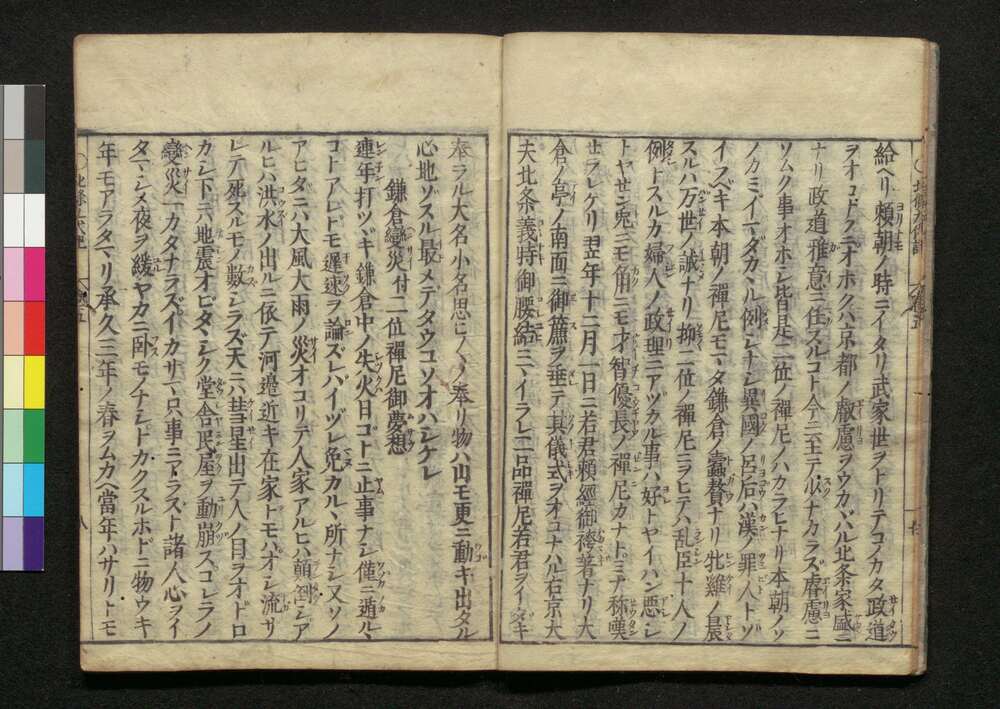 給ヘリ頼朝ノ時ニイタリ武家世ヲトリテコノカタ政道
ヲオコトフニオホクハ京都ノ叡慮ヲウカヾハル北条家盛ニ
ナリ政道雅意ニ任スルコト今ニ至テルスナカラズ睿慮ニ
ソムク事オホシ皆是二位ノ禪尼ノハカラヒナリ本朝ノソ
ノカミイマダカヽル例シナシ異國ノ呂后ハ漢ノ罪人トソ
イフベキ本朝ノ禪尼モマタ鎌倉ノ蠧贅ナリ牝雞ノ晨
スルハ万世ノ誡ナリ抑二位ノ禪尼ヲヲヒテハ乱臣十人ノ
例トスルカ婦人ノ政理ニアツカル事ハ好トヤイハン悪シ
トヤセン兎ニモ角ニモ才智優長ノ禪尼カナトミナ称嘆
セラレケリ翌年十二月一日ニ若君頼經御袴著ナリ大
倉ノ亭ノ南面ニ御簾ヲ垂テ其儀式ヲオコナハル右京大
夫北条義時御腰結ニマイラレ二品禪尼若君ヲイダキ
奉ラル大名小名思ヒ〳〵ノ奉リ物ハ山モ更ニ動キ出タル
心地ゾスル最メデタウコソオハシケレ
鎌倉變災付二位禪尼御夢想
連年打ツヾキ鎌倉中ノ失火日ゴトニ止事ナシ僅ニ遁ルヽ
コトアレドモ遅速ヲ論ズレバイヅレ免カルヽ所ナシ又ソノ
アヒダニハ大風大雨ノ災オコリテ人家アルヒハ顛倒シア
ルヒハ洪水ノ出ルニ依テ河邊近キ在家トモハオシ流サ
レテ死スルモノ數シラズ天ニハ彗星出テ人ノ目ヲオドロ
カシ下ニハ地震オビタヽシク堂舎民屋ヲ動崩スコレラノ
變災一カタナラズイカサマ只事ニアラズト諸人心ヲイ
タマシメ夜ヲ緩ヤカニ卧モノナシトカクスルホドニ物ウキ
年モアラタマリ承久三年ノ春ヲムカヘ當年ハサリトモ